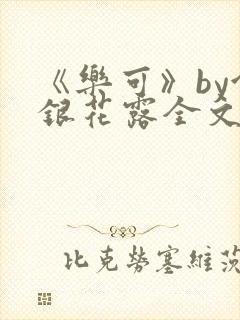 《樂可》by
銀花露全文
比克勞塞維茨